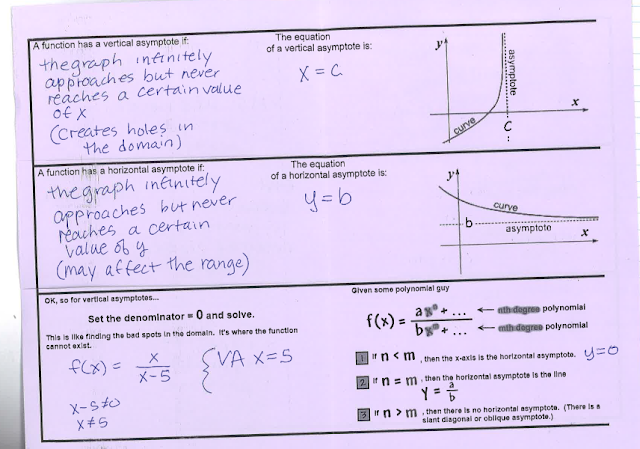 A function has a vertical asymptote if:
the graph infinitely
approaches but never
reaches a certain value
of x
(creates holes in
the domain)
The equation
of a vertical asymptote is:
x = c
y
asymptote
x
curve
c
A function has a horizontal asymptote if:
the graph infinitely
approaches but never
reaches a certain
value of y
(may affect the range)
The equation
of a horizontal asymptote is:
y = b
y
curve
b
asymptote
x
OK, so for vertical asymptotes...
Set the denominator = 0 and solve.
This is like finding the bad spots in the domain. It's where the function
cannot exist.
f(x) = x / x-5 { VA x=5
x-5≠0
x≠5
Given some polynomial guy
f(x) = axⁿ + ... ← nth degree polynomial
bxᵐ + ... ← mth degree polynomial
1 If n < m , then the x-axis is the horizontal asymptote. y=0
2 If n = m , then the horizontal asymptote is the line
Y = a/b
3 If n > m , then there is no horizontal asymptote. (There is a
slant diagonal or oblique asymptote.)